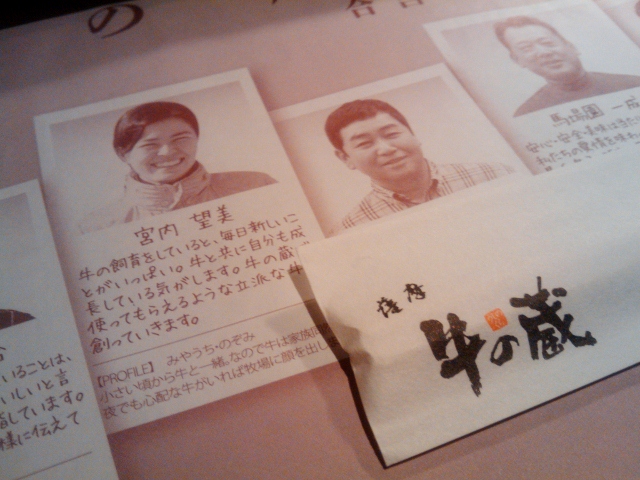 の
宮内 望美
牛の飼育をしていると、毎日新しいこ
とがいっぱい。牛と共に自分も成
長している気がします。牛の蔵
使ってもらえるような立派な牛
創っていきます。
【PROFILE】 みやうち・のぞみ
小さい頃から牛と一緒。なので牛は家族同
夜でも心配な牛がいれば牧場に顔を出し
馬場園 一成
安心・安全・美味
私たちの愛情を味わ
いることは、
いいと言
指しています。
様に伝えて
薩摩
牛の蔵